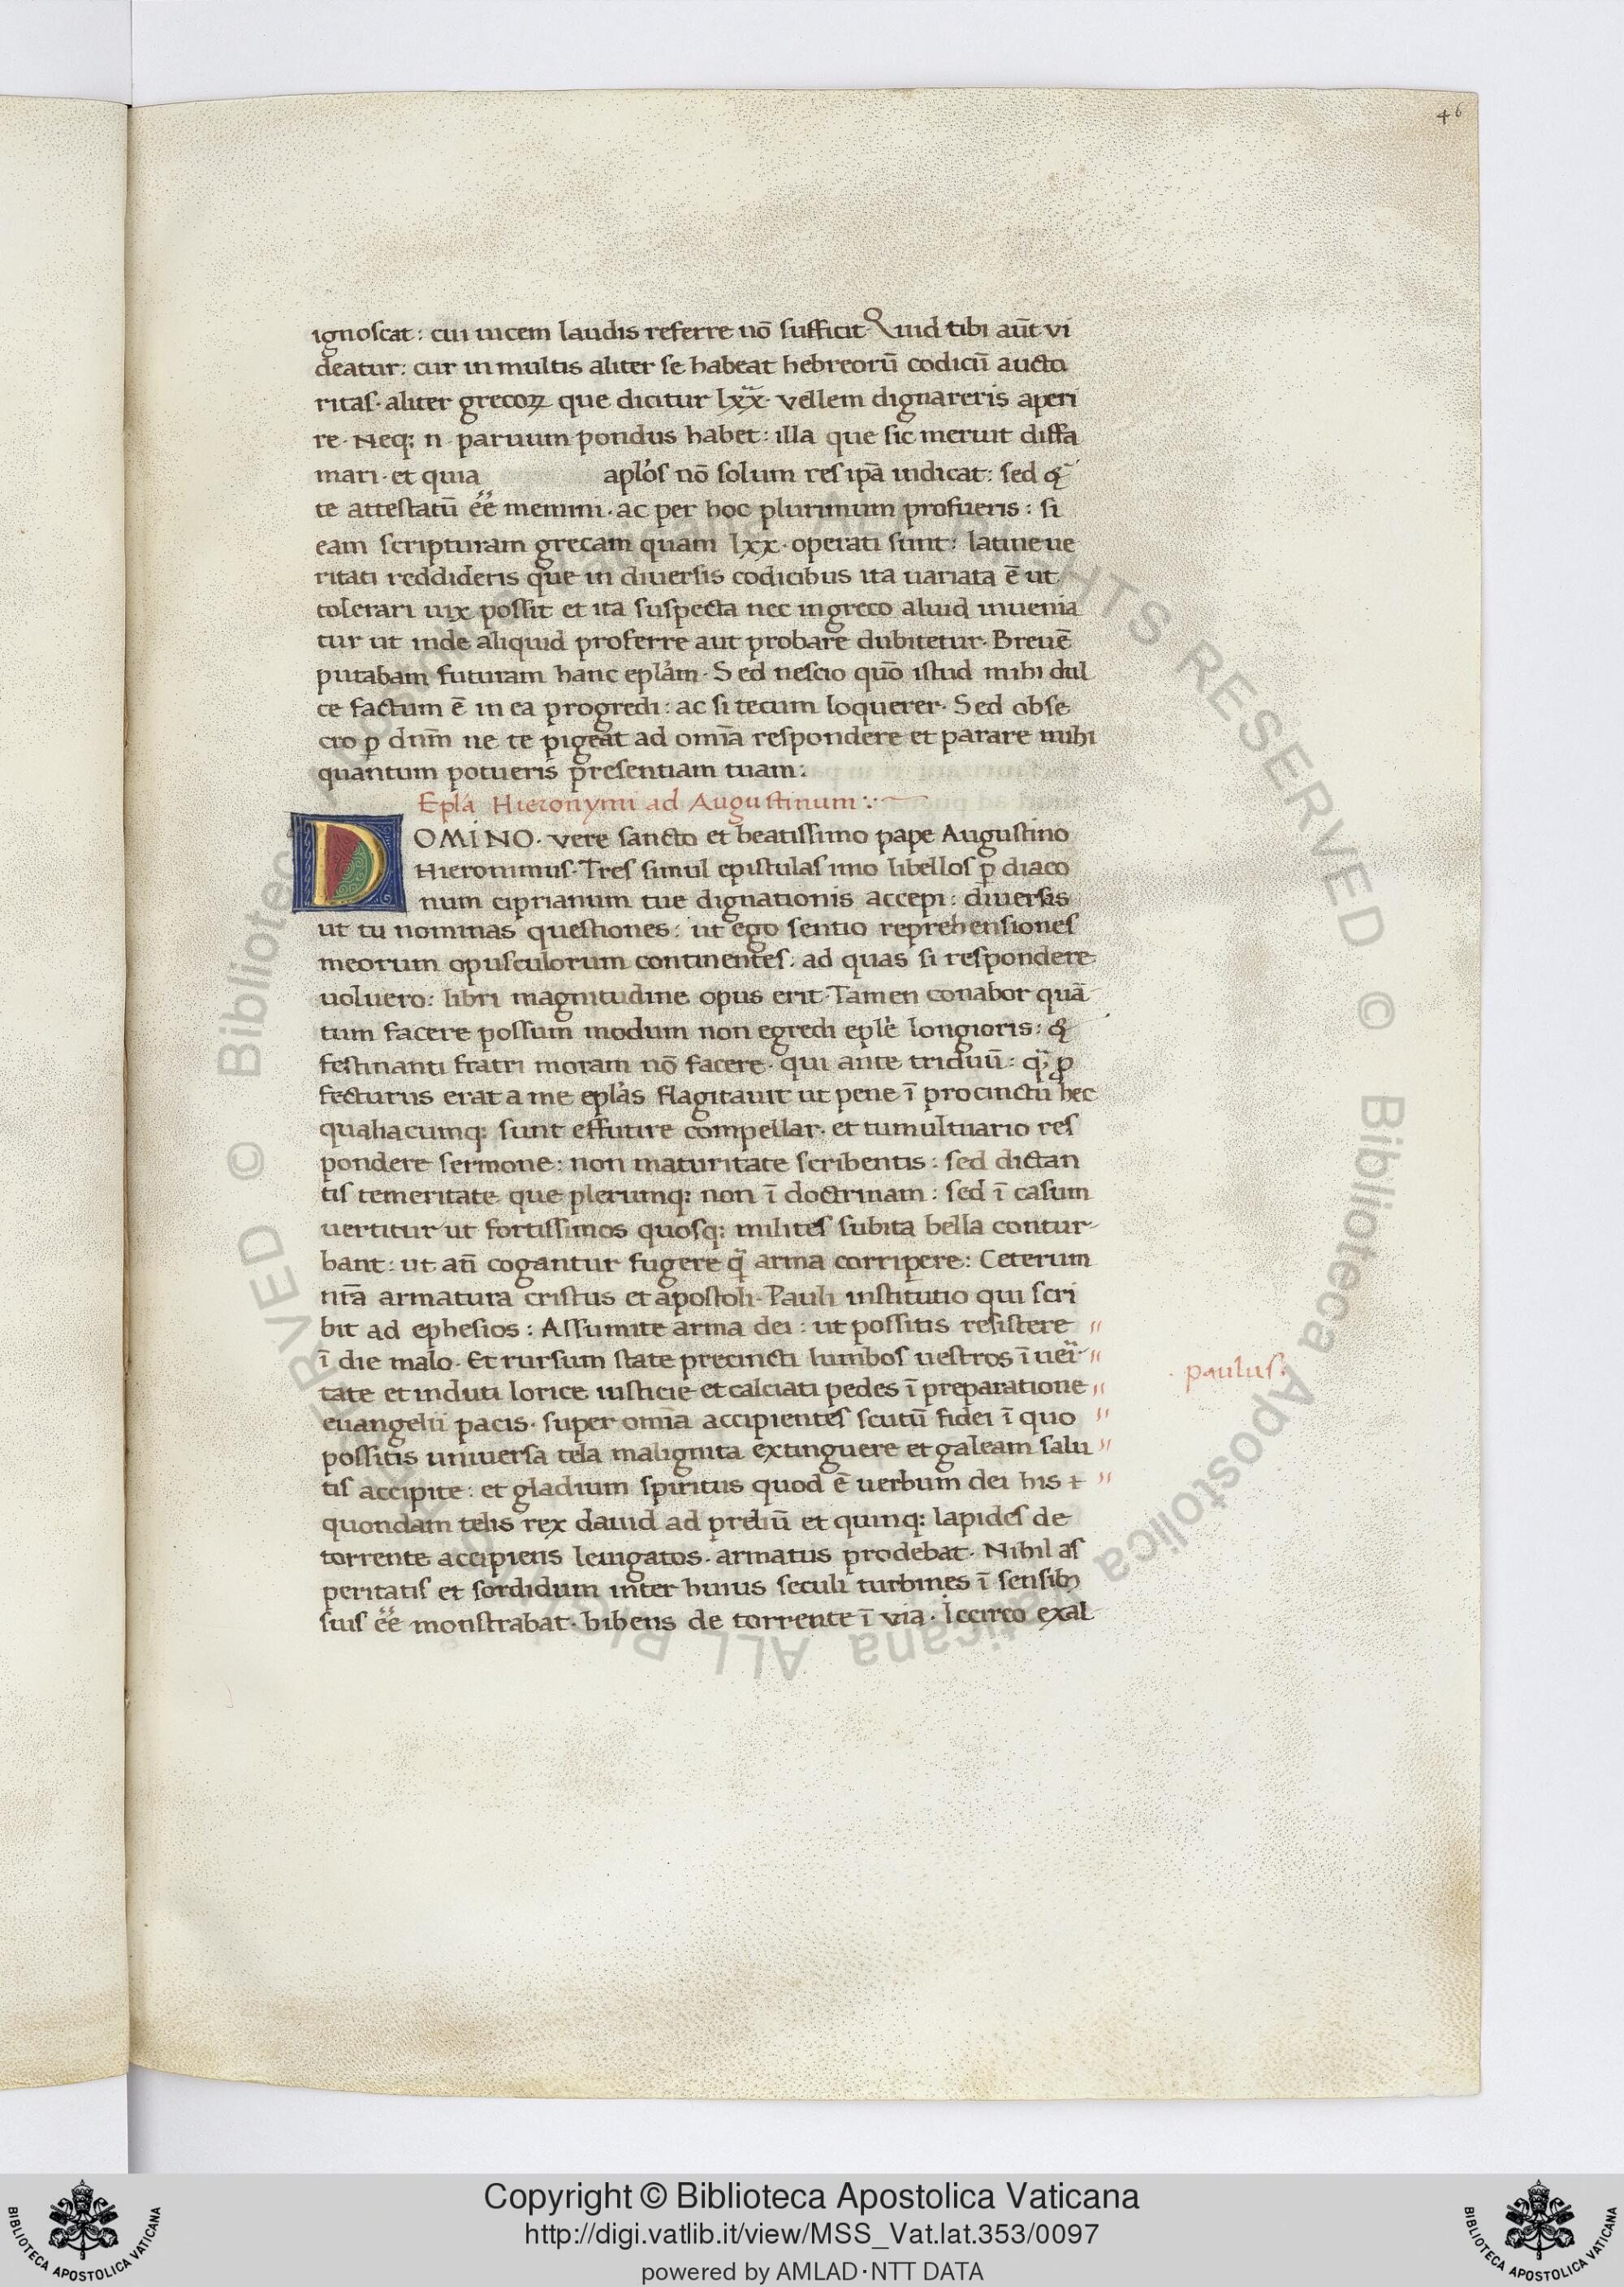 46
ignoscat: cui uicem laudis referre nō sufficit Quid tibi aūt vi
deatur: cur in multis aliter se habeat hebreorū codicū aucto
ritas· aliter grecoꝝ que dicitur lxx· vellem dignareris aperi
re· Neq; n· paruum pondus habet: illa que sic meruit diffa
mari· et quia aplo's nō solum res ipā indicat: sed &
te attestatū ēē memini· ac per hoc plurimum profueris: si
eam scripturam grecam quam lxx· operati sunt: latine ue
ritati reddideris que in diuersis codicibus ita uariata ē ut
tolerari uix possit et ita suspecta nec in greco aliud inuenia
tur ut inde aliquid proferre aut probare dubitetur· Breuē
putabam futuram hanc epla'm· Sed nescio quō istud mihi dul
ce factum ē in ea progredi: ac si tecum loquerer· Sed obse
cro ꝑ dnm̄ ne te pigeat ad omīa respondere et parare mihi
quantum potueris presentiam tuam:
Epla' Hieronymi ad Augustinum:·
DOMINO· vere sancto et beatissimo pape Augustino
Hieronimus· Tres simul epistulas imo libellos ꝑ diaco
num ciprianum tue dignationis accepi: diuersas
ut tu nominas questiones: ut ego sentio reprehensiones
meorum opusculorum continentes: ad quas si respondere
uoluero: libri magnitudine opus erit· Tamen conabor quā
tum facere possum modum non egredi eple' longioris: &
festinanti fratri moram nō facere· qui ante triduū: q; ꝓ
fecturus erat a me epla's flagitauit ut pene ī procinctu hec
qualiacumq; sunt effutire compellar· et tumultuario res
pondere sermone: non maturitate scribentis: sed dictan
tis temeritate que plerumq; non ī doctrinam: sed ī casum
uertitur ut fortissimos quosq; milites subita bella contur
bant: ut an̄ cogantur fugere q̄ arma corripere: Ceterum
nrā armatura cristus et apostoli· Pauli institutio qui scri
bit ad ephesios: Assumite arma dei: ut possitis resistere "
ī die malo· Et rursum state precincti lumbos uestros ī ueri "
tate et induti lorice iusticie et calciati pedes ī preparatione "
euangelii pacis· super omīa accipientes scutū fidei ī quo "
possitis uniuersa tela maligni ita extinguere et galeam salu "
tis accipite: et gladium spiritus quod ē uerbum dei his "
quondam telis rex dauid ad preliū et quinq; lapides de
torrente accipiens leuigatos· armatus prodebat· Nihil as
peritatis et sordidum inter huius seculi turbines ī sensibꝫ
suis ēē monstrabat· bibens de torrente ī via· Iccirco exal
paulus·
Copyright © Biblioteca Apostolica Vaticana
http://digi.vatlib.it/view/MSS_Vat.lat.353/0097
powered by AMLAD·NTT DATA
BIBLIOTECA APOSTOLICA VATICANA
BIBLIOTECA APOSTOLICA VATICANA
© Biblioteca Apostolica Vaticana ALL RIGHTS RESERVED